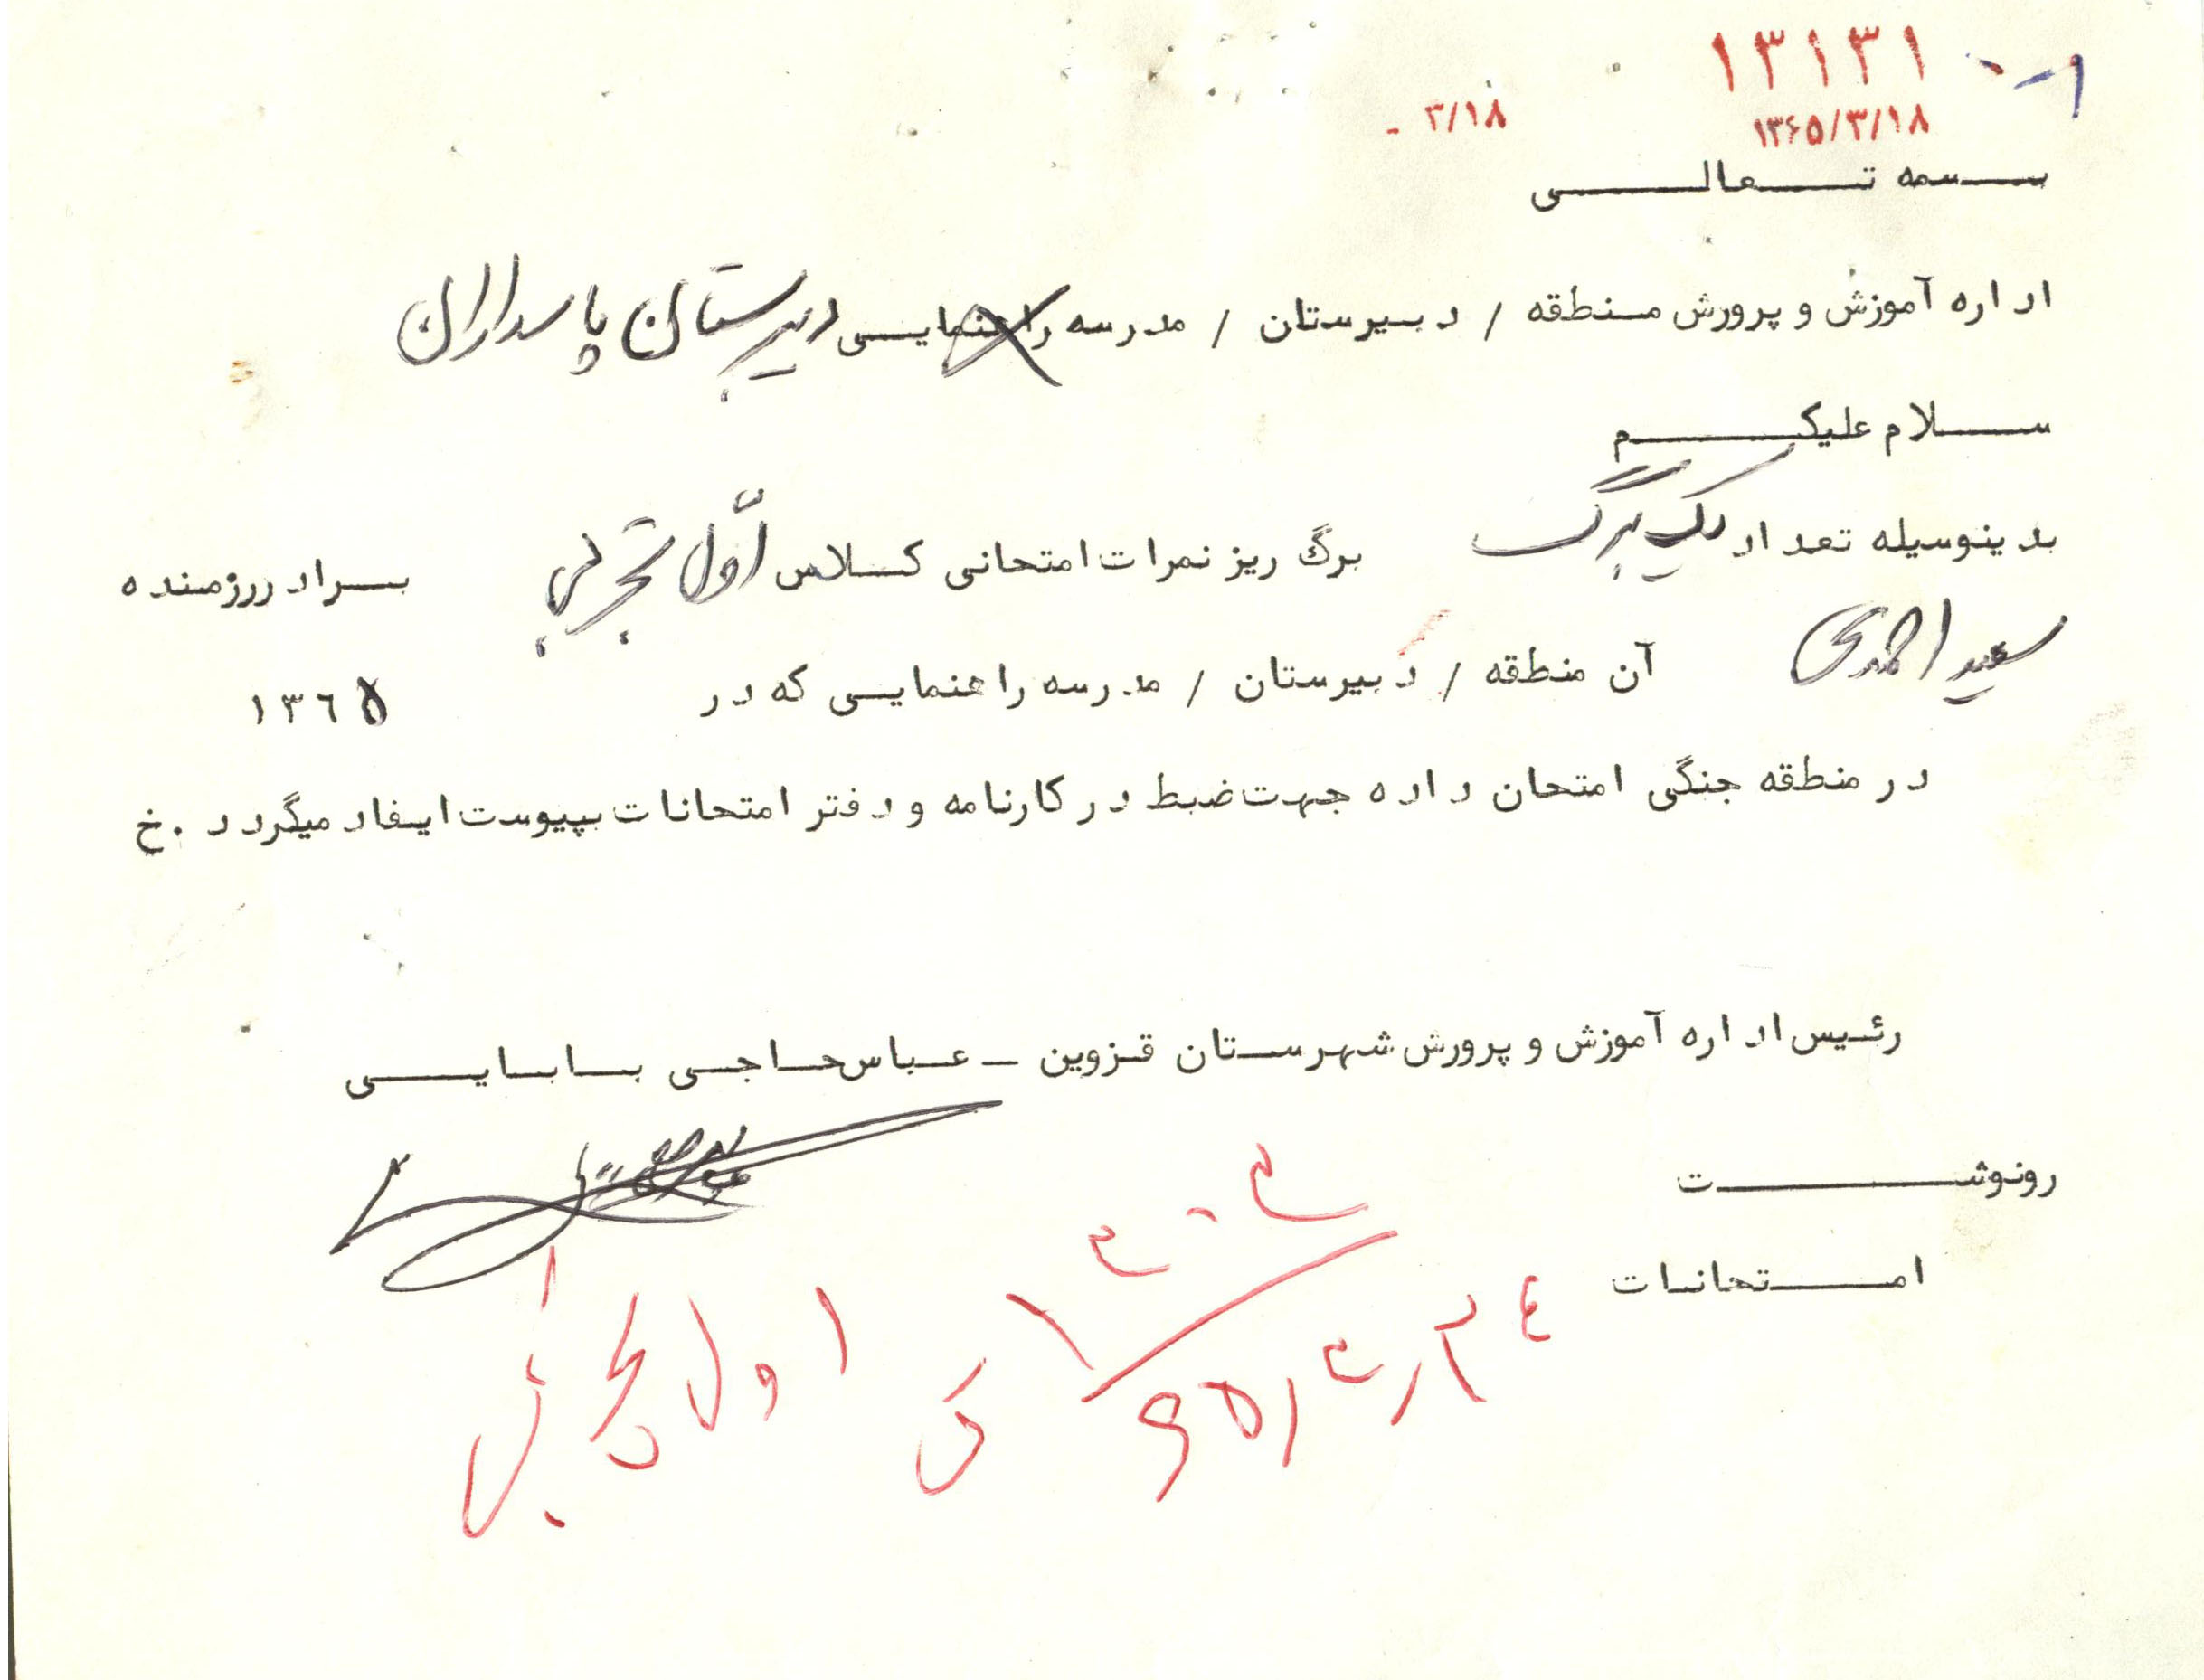 ۱۳۱۳۱
۱۳۶۵/۳/۱۸ ۳/۱۸ -
بسمه تعالی
اداره آموزش و پرورش منطقه / دبیرستان / مدرسه راهنمایی دبیرستان پاسداران
سلام علیکم
بدینوسیله تعداد یک برگ برگ ریز نمرات امتحانی کلاس اوّل تجربی برادر رزمنده
سعید احمدی آن منطقه / دبیرستان / مدرسه راهنمایی که در ۱۳٦۵
در منطقه جنگی امتحان داده جهت ضبط در کارنامه و دفتر امتحانات بپیوست ایفاد میگردد .خ
رئیس اداره آموزش و پرورش شهرستان قزوین - عباس حاجی بابایی
رونوشت
امتحانات
اول تجربی